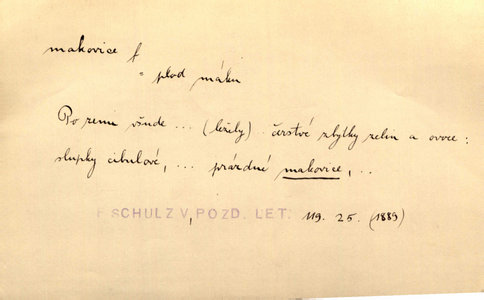 makovice f
= plod máku
Po zemi všude ... (ležely) čerstvé zbytky zelin a ovoce:
slupky cibulové, ... prázdné makovice, ..
F. SCHULZ V POZD. LET. 119. 25. (1889)